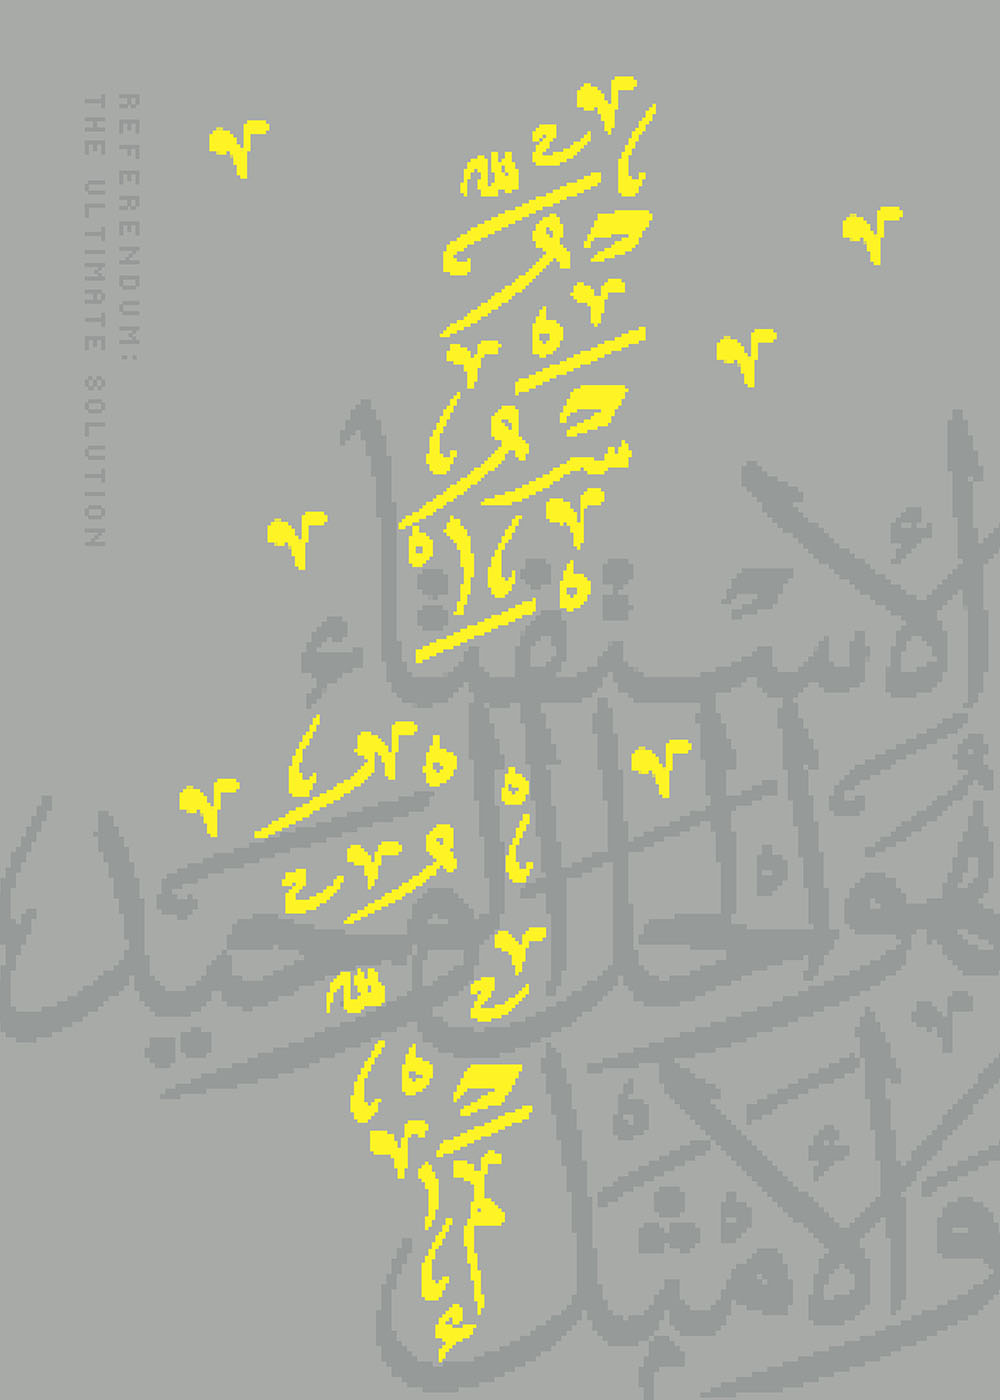 REFERENDUM:
THE ULTIMATE SOLUTION
الاستفتاء
هو الحل الوحيد
والأمثل